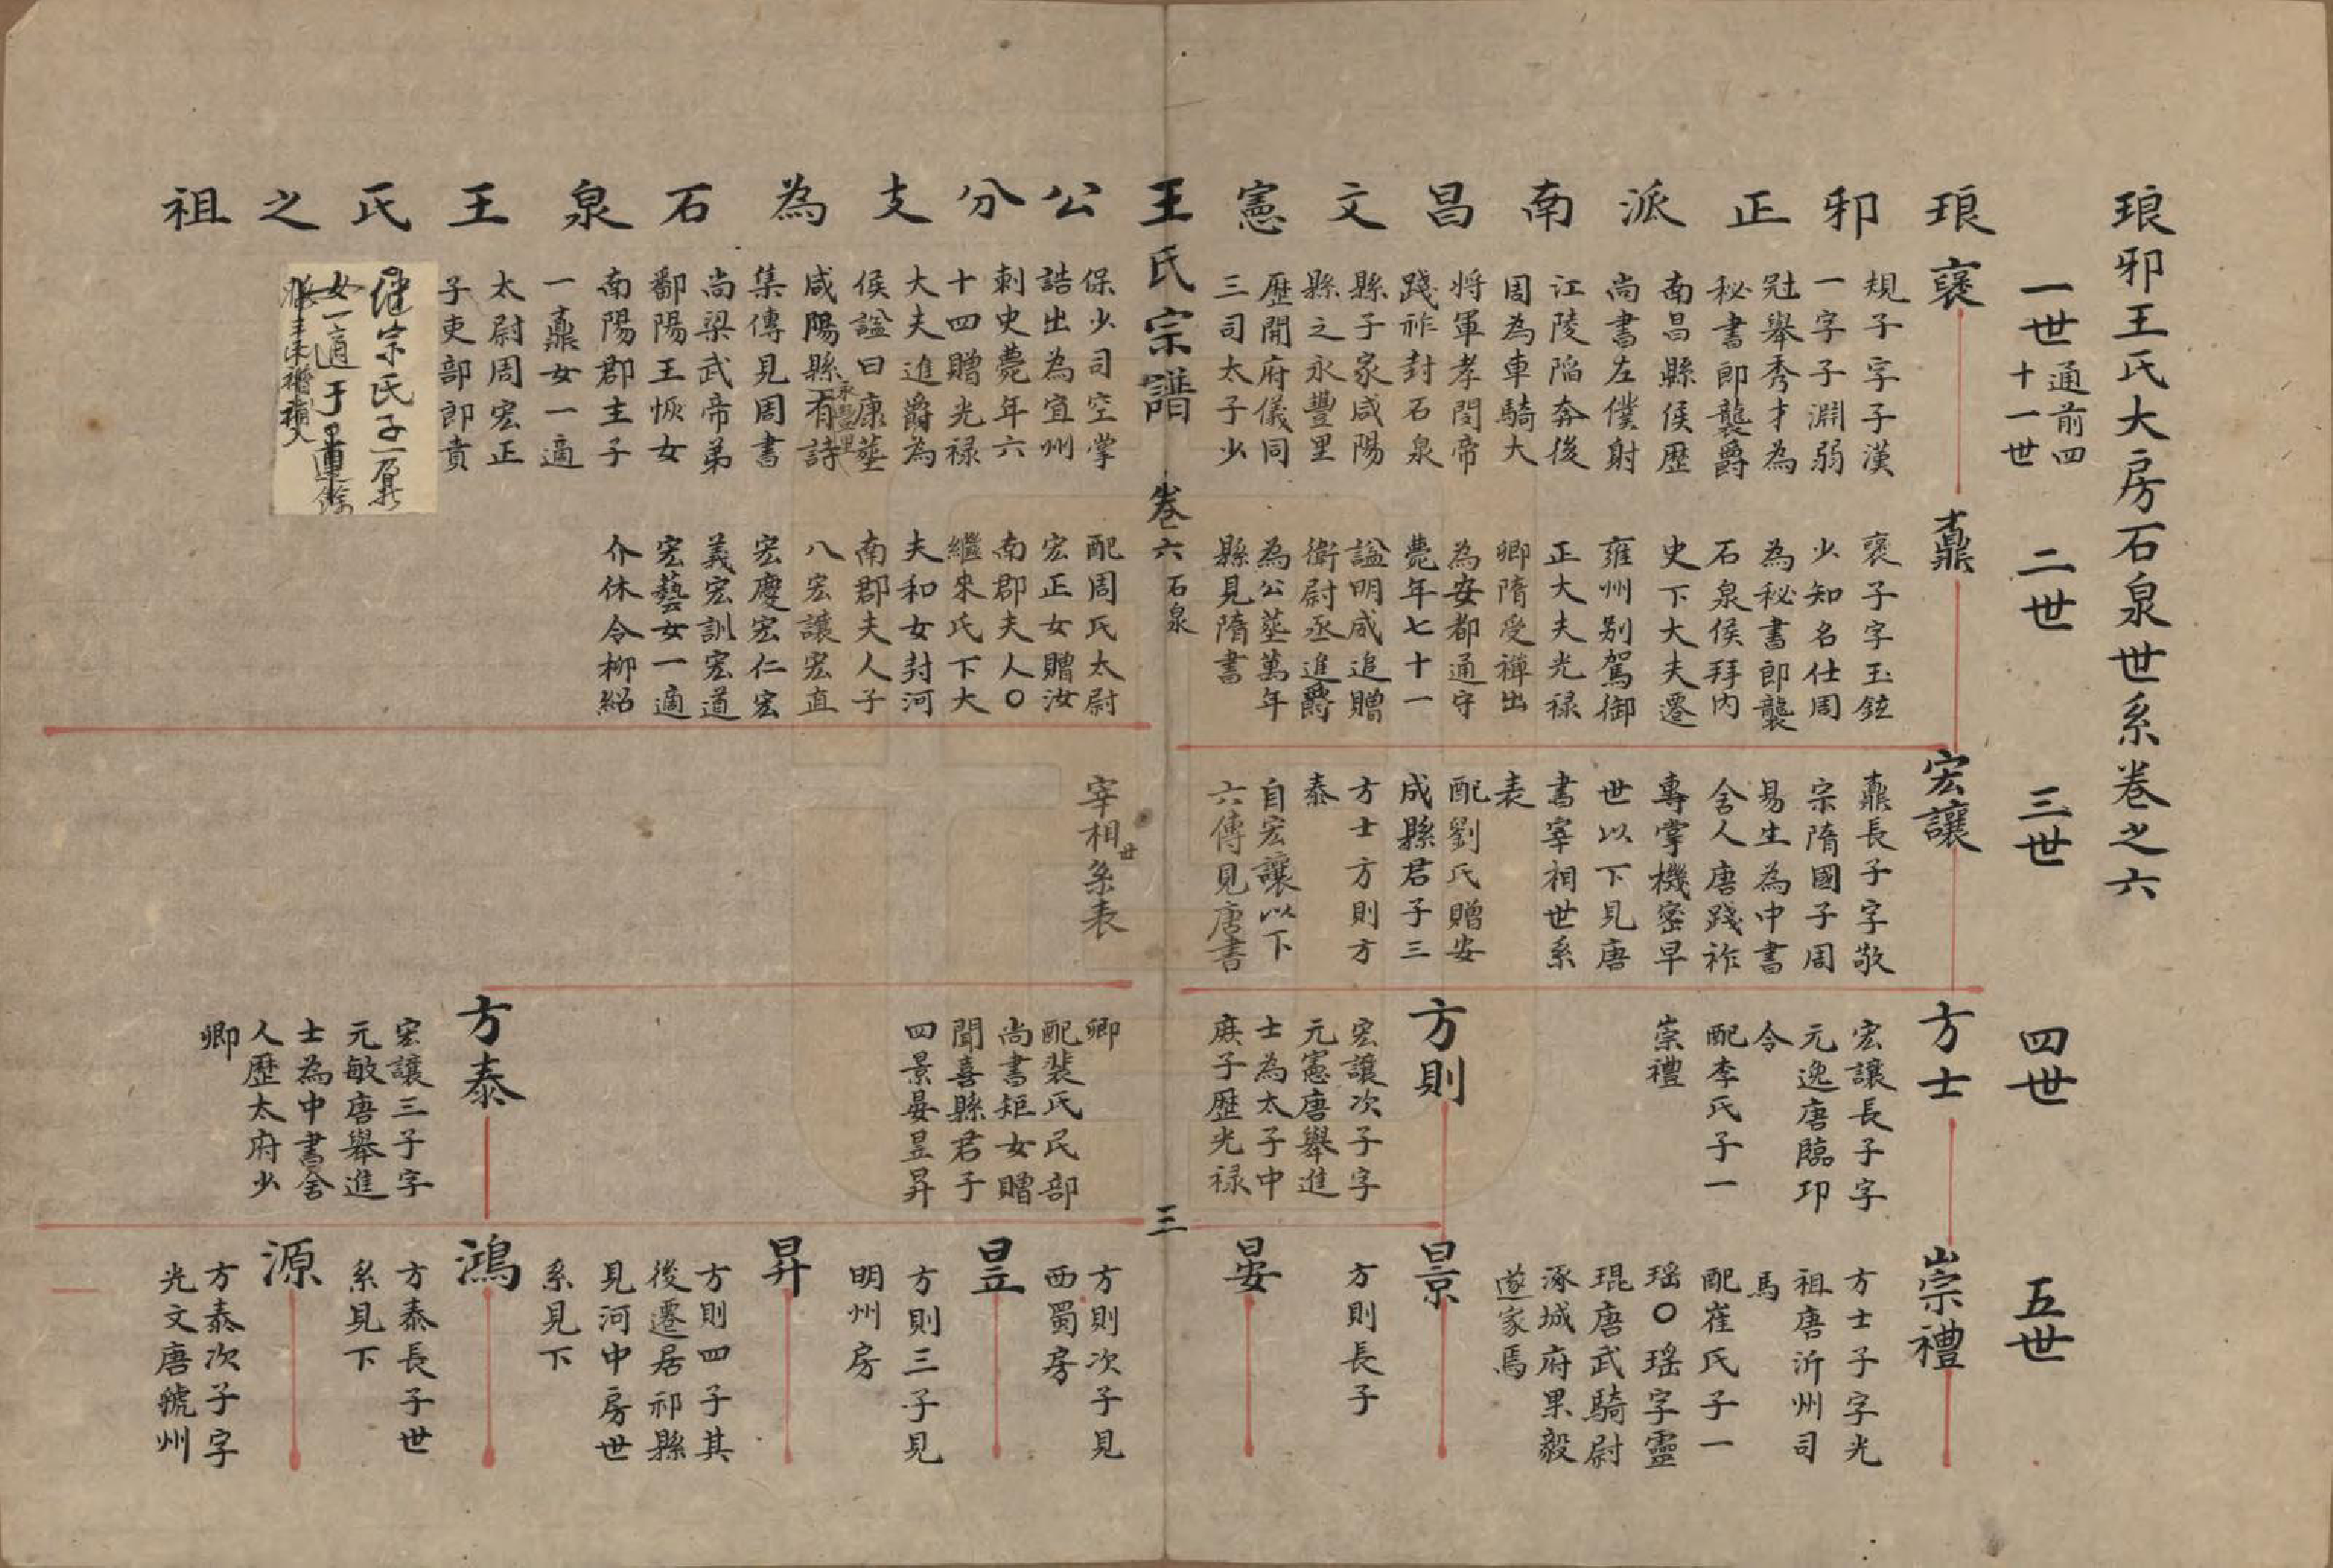 琅邪王氏大房石泉世系卷之六
一世 通前四十一世
二世
三世
四世
五世
琅邪正派南昌文憲
王公分支為石泉王氏之祖
褒
規子字子漢
一字子淵弱
冠舉秀才為
秘書郎襲爵
南昌縣侯歷
尚書左僕射
江陵陷奔後
周為車騎大
將軍孝閔帝
踐祚封石泉
縣子家咸陽
縣之永豐里
歷開府儀同
三司太子少
鼒
褒子字玉鉉
少知名仕周
為秘書郎襲
石泉侯拜內
史下大夫遷
雍州別駕御
正大夫光祿
卿隋受禪出
為安都通守
薨年七十一
謚明咸追贈
衛尉丞進爵
為公葬萬年
縣見隋書
宏讓
鼒長子字敬
宗隋國子周
易生為中書
舍人唐踐祚
專掌機密早
世以下見唐
書宰相世系
表
配劉氏贈安
成縣君子三
方士方則方
泰
自宏讓以下
六傳見唐書
方士
宏讓長子字
元逸唐臨邛
令
配李氏子一
崇禮
方則
宏讓次子字
元憲唐舉進
士為太子中
庶子歷光祿
崇禮
方士子字光
祖唐沂州司
馬
配崔氏子一
瑶〇瑤字靈
琨唐武騎尉
涿城府果毅
遂家焉
景
方則長子
晏
王氏宗譜
卷六 石泉
三
保少司空掌
誥出為宜州
刺史薨年六
十四贈光祿
大夫進爵為
侯謚曰康葬
咸陽縣有詩
集傳見周書
尚梁武帝弟
鄱陽王恢女
南陽郡主子
一鼒女一適
太尉周宏正
子吏部郎賁
繼宗氏子一鼐
配周氏太尉
宏正女贈汝
南郡夫人〇
繼來氏下大
夫和女封河
南郡夫人子
八宏讓宏直
宏慶宏仁宏
義宏訓宏道
宏藝女一適
介休令柳紹
宰相世系表
卿
配裴氏民部
尚書矩女贈
聞喜縣君子
四景晏昱昇
方泰
宏讓三子字
元敏唐舉進
士為中書舍
人歷太府少
卿
方則次子見
西蜀房
昱
方則三子見
明州房
昇
方則四子其
後遷居祁縣
見河中房世
系見下
鴻
方泰長子世
系見下
源
方泰次子字
光文唐虢州